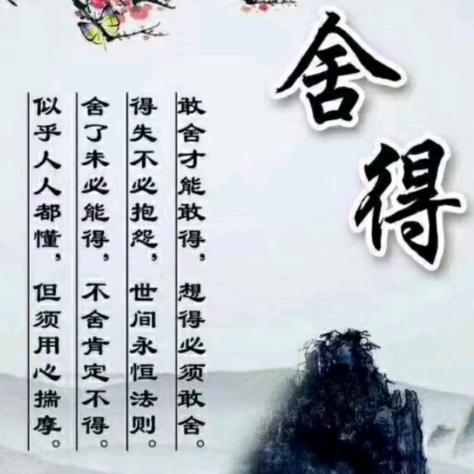 舍得
敢舍才能敢得，想得必须敢舍。
得失不必抱怨，世间永恒法则。
舍了未必能得，不舍肯定不得。
似乎人人都懂，但须用心揣摩。